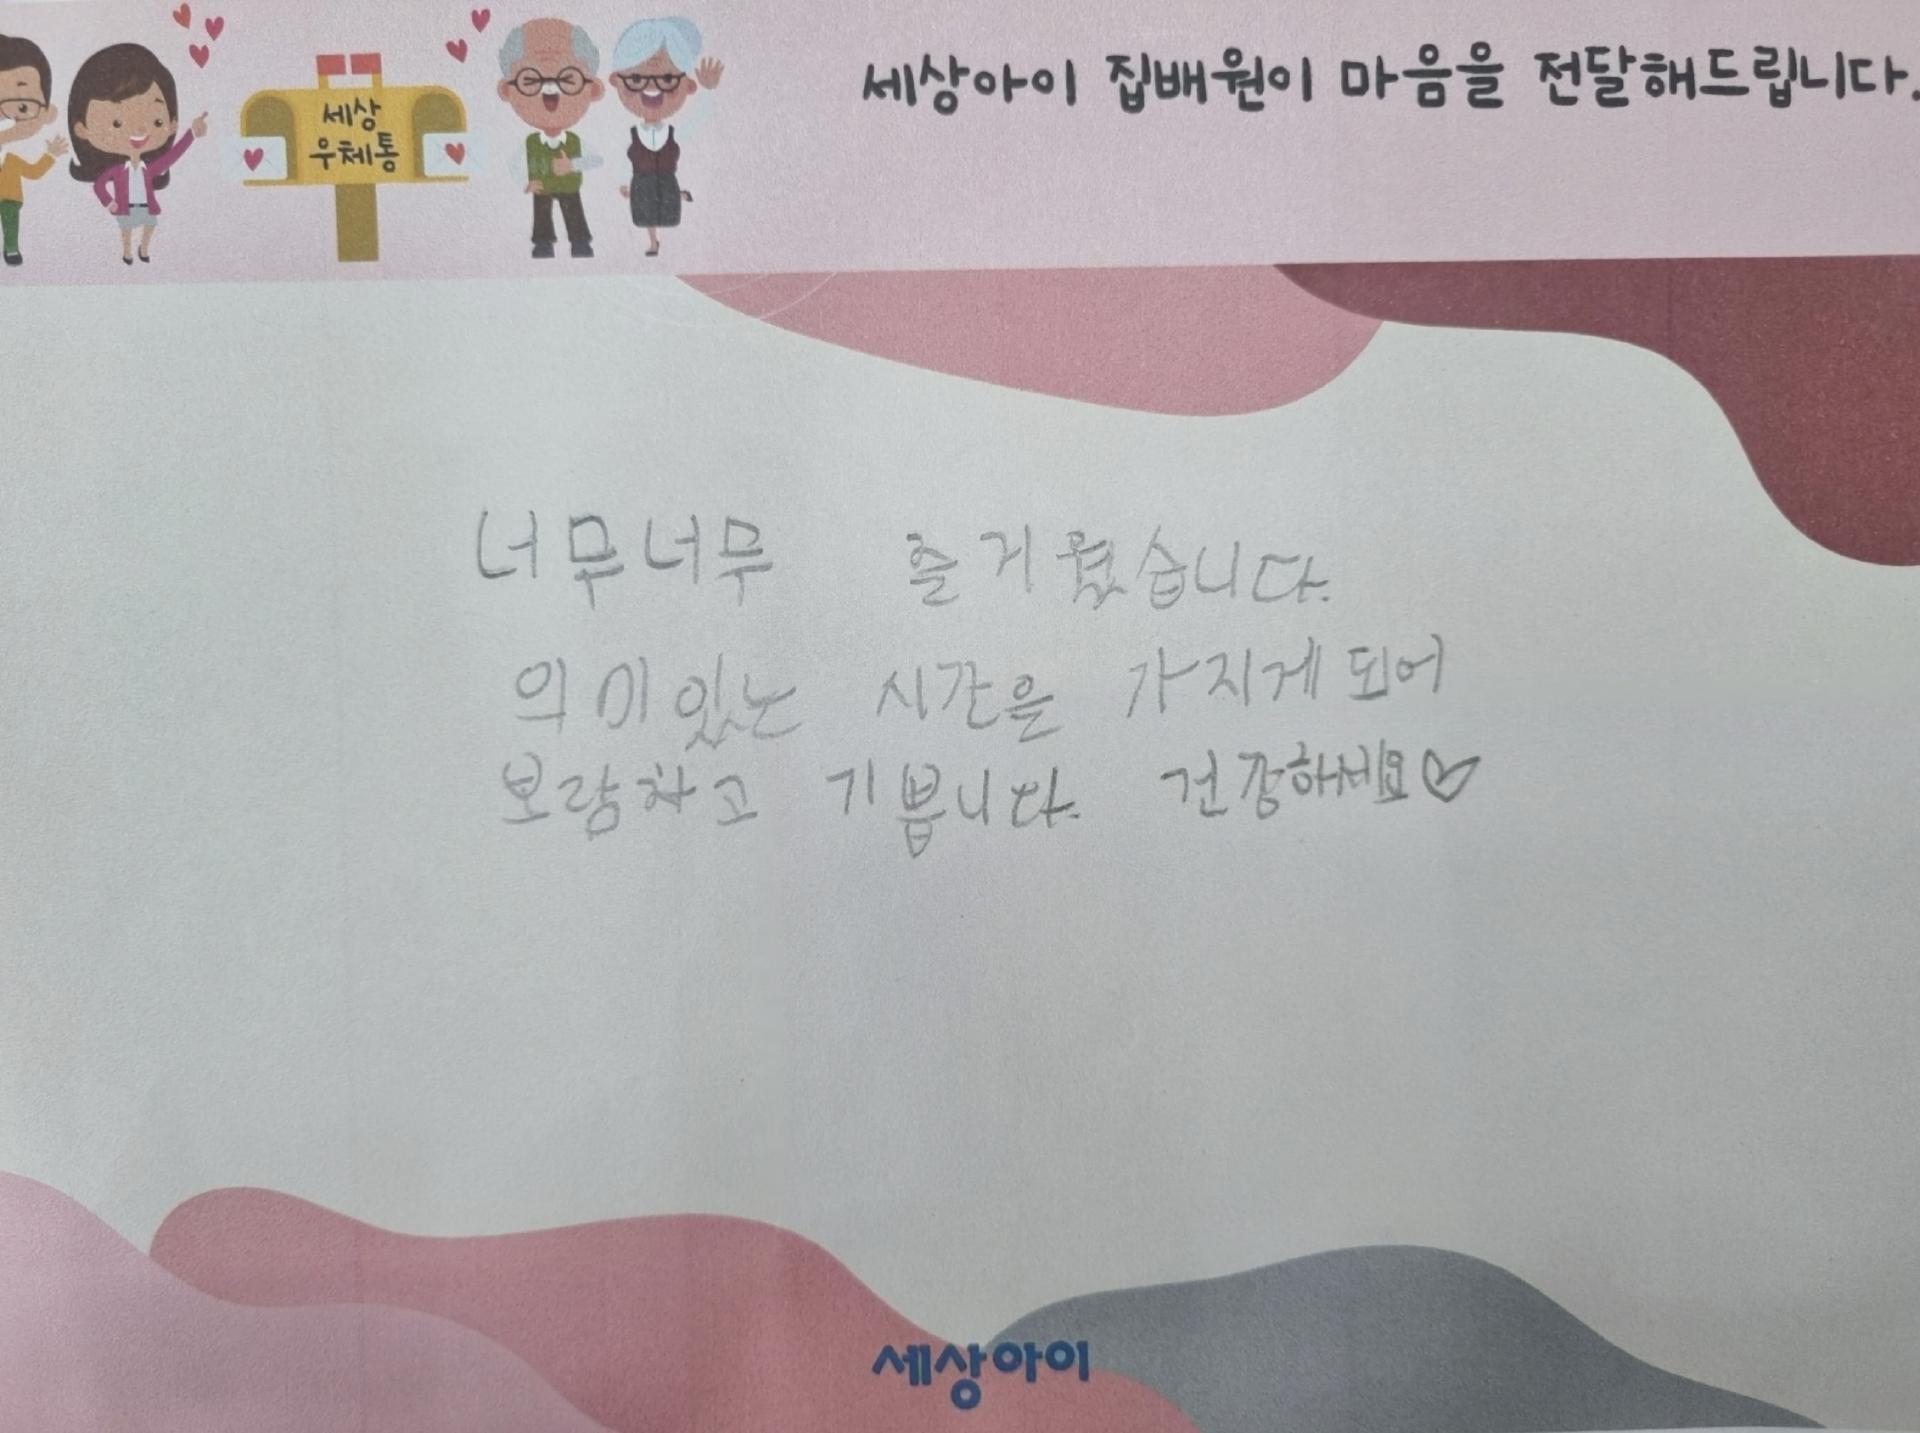 세상아이 집배원이 마음을 전달해드립니다.
세상
우체통
너무너무 즐거웠습니다.
의미있는 시간을 가지게 되어
보람차고 기쁩니다. 건강하세요♡
세상아이